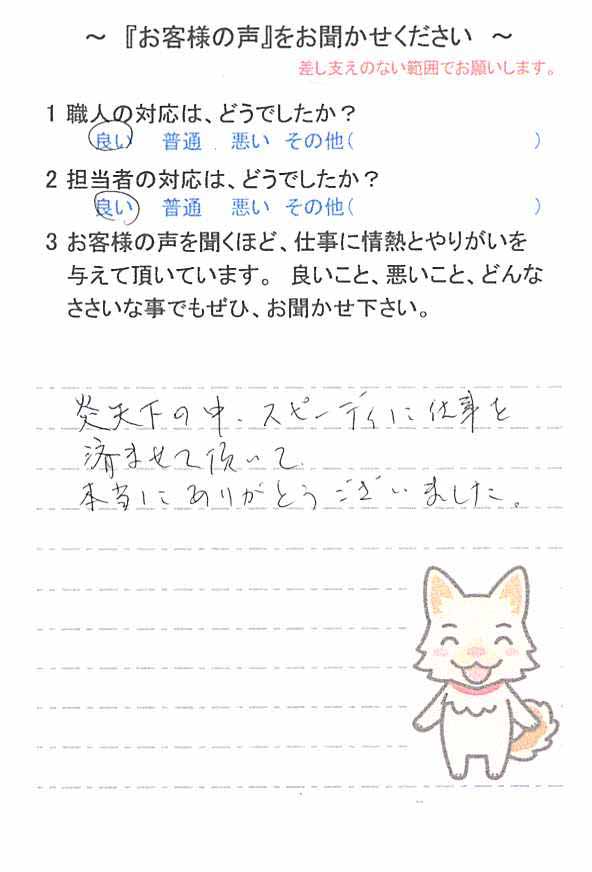 ～ 『お客様の声』をお聞かせください ～
差し支えのない範囲でお願いします。
1 職人の対応は、どうでしたか？
良い 普通 悪い その他( )
2 担当者の対応は、どうでしたか？
良い 普通 悪い その他( )
3 お客様の声を聞くほど、仕事に情熱とやりがいを
与えて頂いています。 良いこと、悪いこと、どんな
ささいな事でもぜひ、お聞かせ下さい。
炎天下の中、スピーディに仕事を
済ませて頂いて、
本当にありがとうございました。